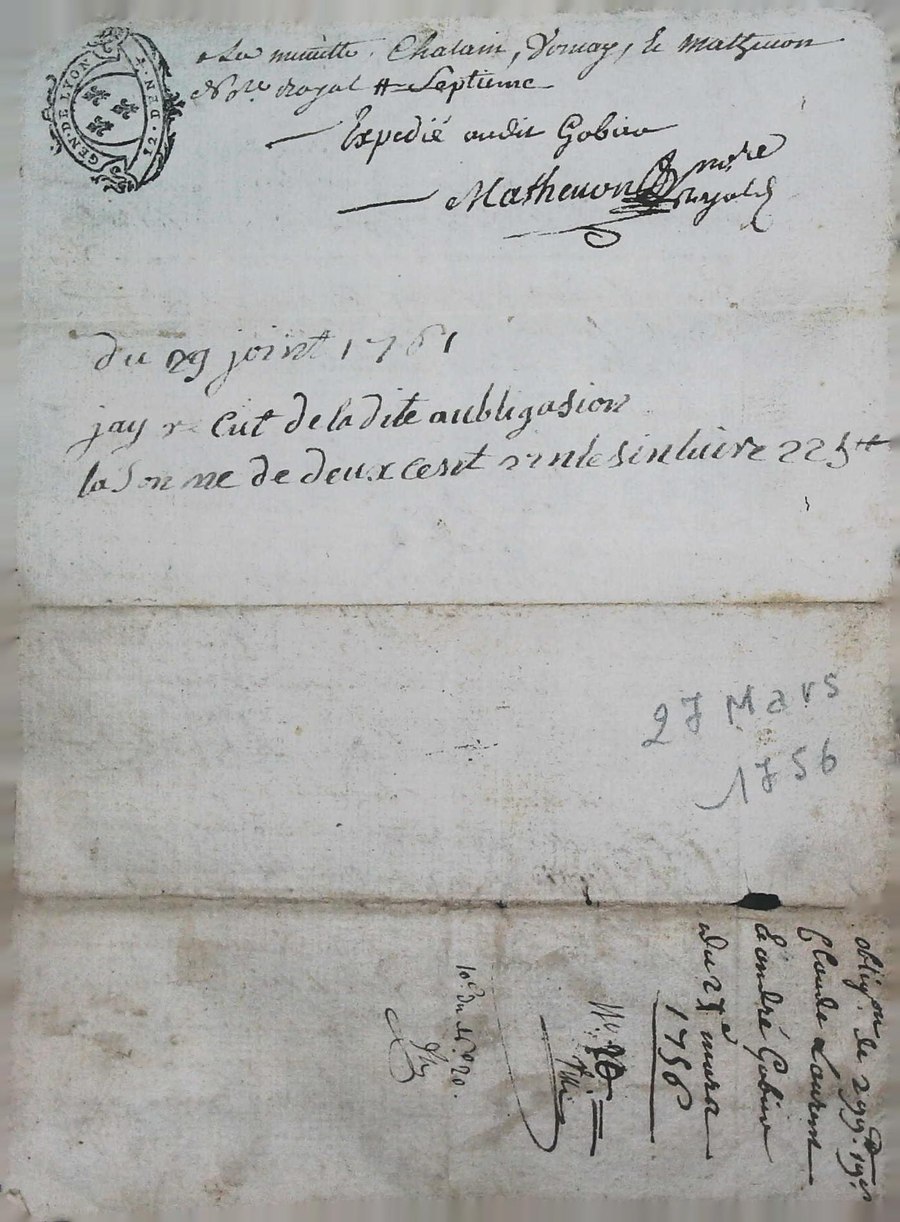 GEN. DE LYON
12. DEN. 4
La minutte Chalain, Vernay, & Mathevon
No.re Royal # Septieme
Expedié audit Gobin
Mathevon no.re
Royal
du 29 joint 1761
jay re cut de la dite aubligasion
la Son me de deux cent vinte sin livre 225 tt
27 Mars
1756
oblig.on de 299.tt 19
Claude Laurent
à andré Gobin
du 27 mars
1756
10.e du N.o 20.